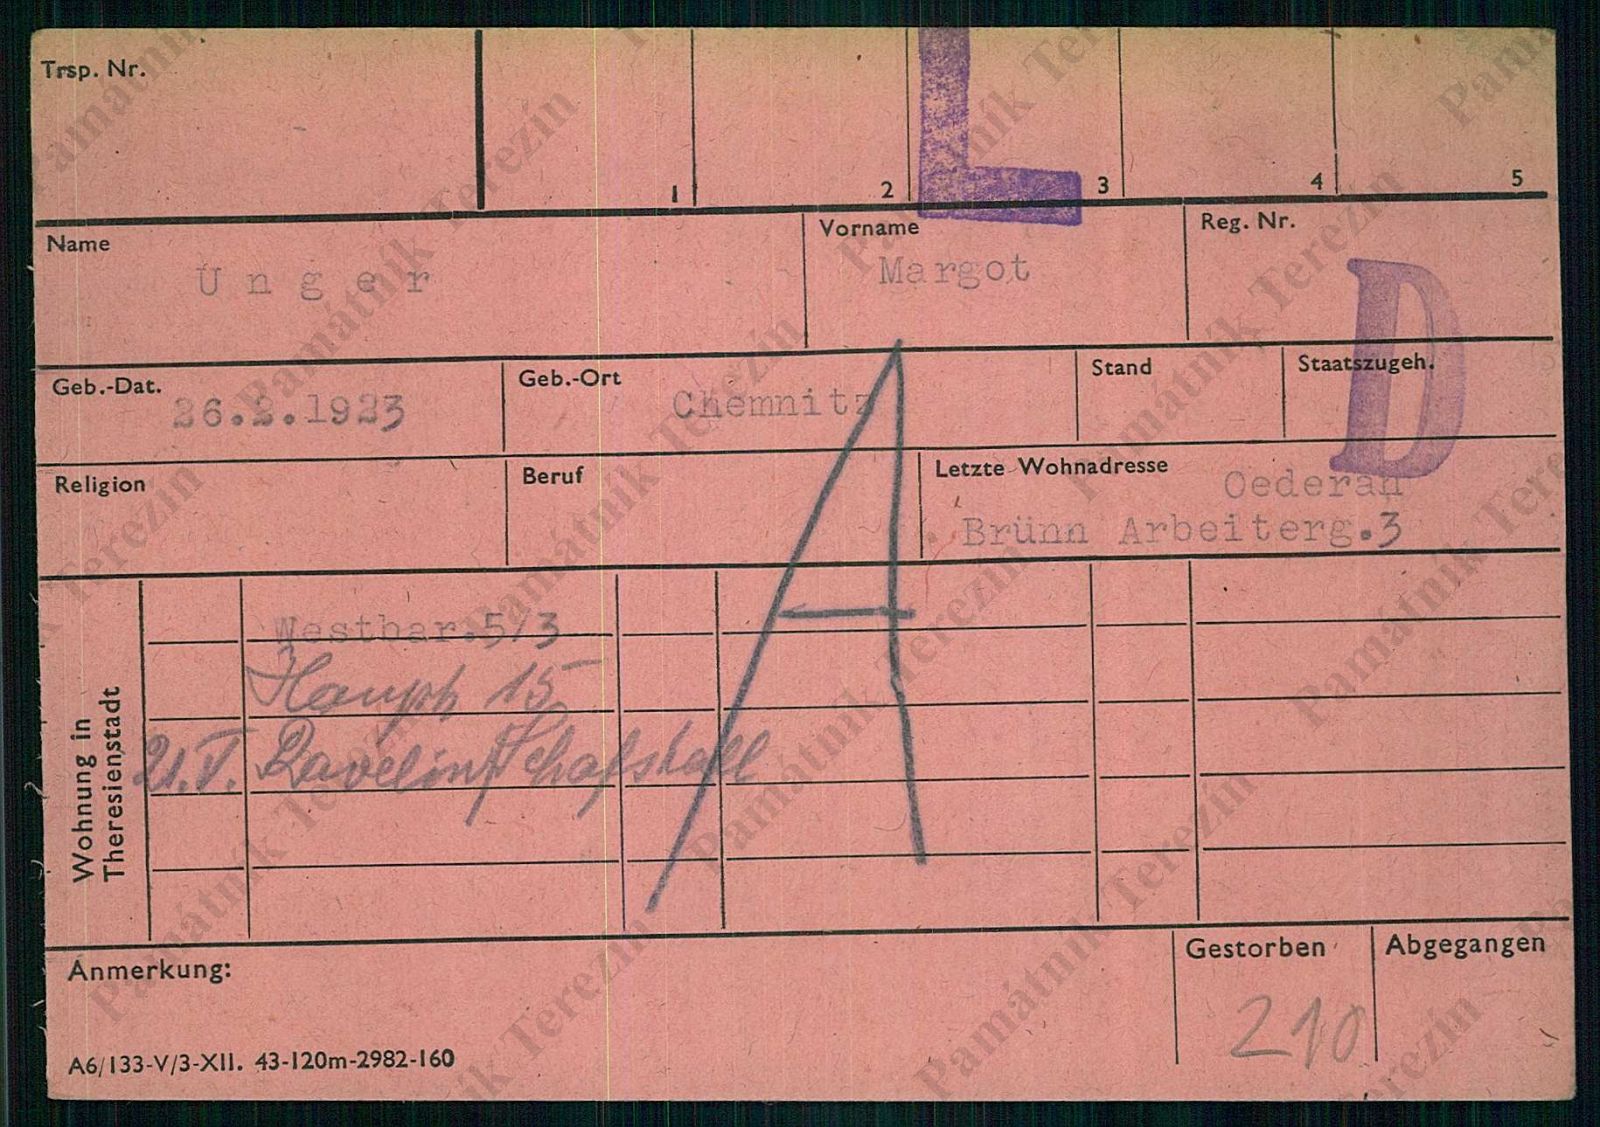 Trsp. Nr.
1 2 3 4 5
L
Name Vorname Reg. Nr.
Unger Margot
D
Geb.-Dat. Geb.-Ort Stand Staatszugeh.
26.2.1923 Chemnitz
Religion Beruf Letzte Wohnadresse
Oederan
Brünn Arbeiterg.3
A
Wohnung in
Theresienstadt
Westbar.5/3
Haupt 15
21.V. Ravelin Schafstall
Anmerkung: Gestorben Abgegangen
210
A6/133-V/3-XII. 43-120m-2982-160
Památník Terezín